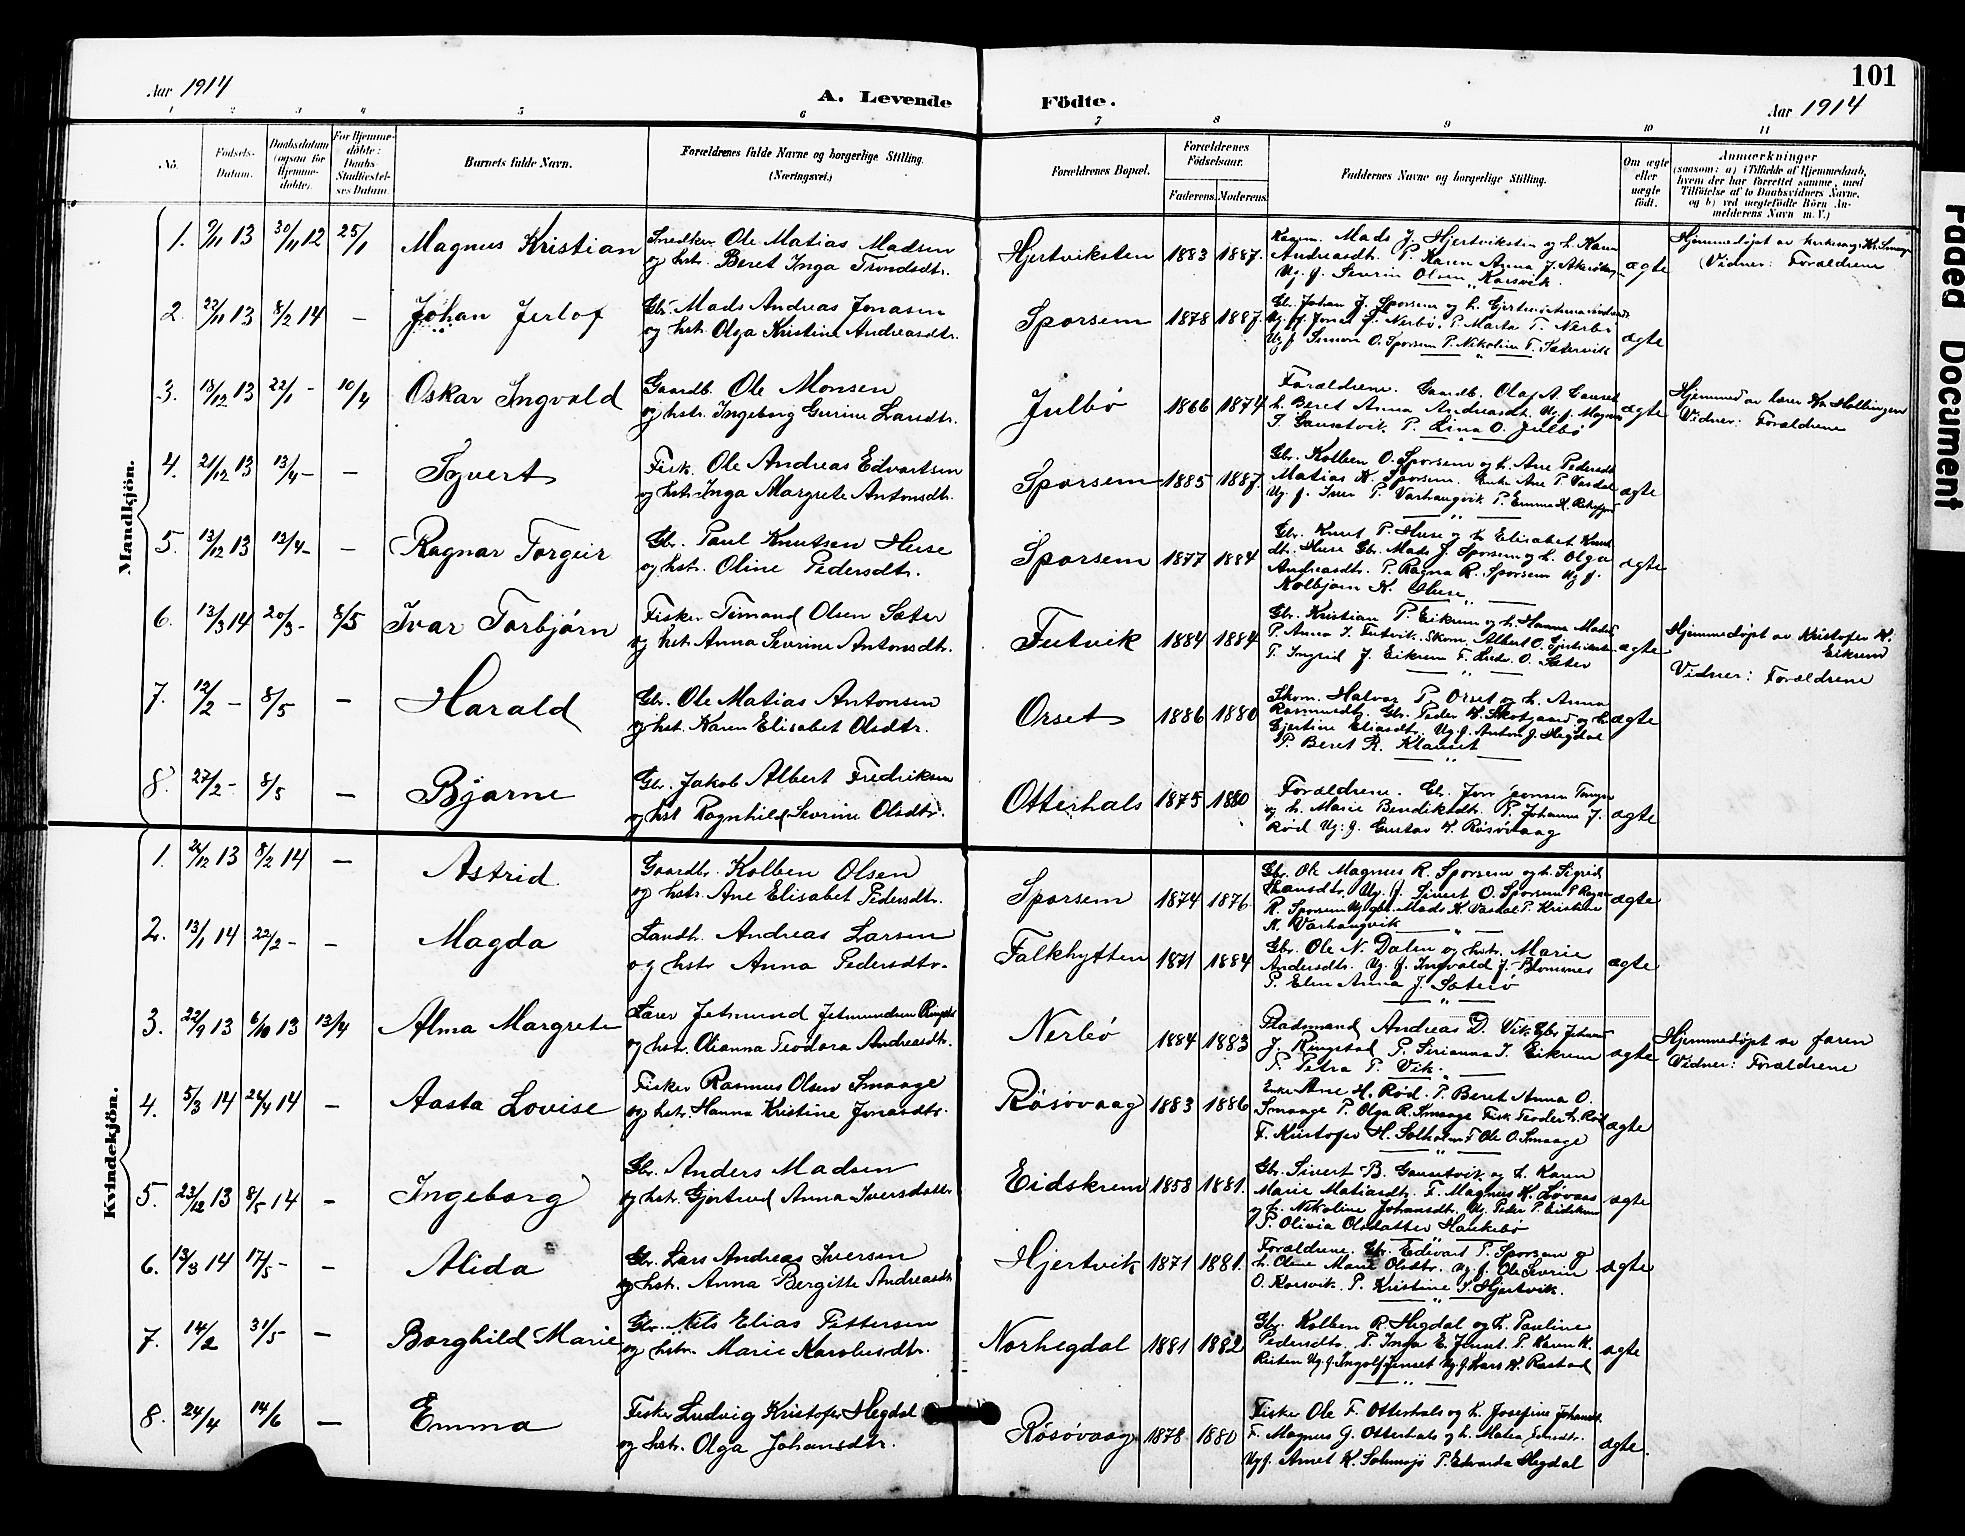 101
Aar 1914
A. Levende Födte.
Aar 1914
1 2 3 4 5 6 7 8 9 10 11
No.
Födsels-Datum.
Daabsdatum (ogsaa for Hjemme-döbte).
For Hjemme-döbte: Daabs Stadfæstel-ses Datum.
Barnets fulde Navn.
Forældrenes fulde Navne og borgerlige Stilling.
(Næringsvei.)
Forældrenes Bopæl.
Forældrenes Födselsaar.
Faderens. Moderens.
Faddernes Navne og borgerlige Stilling.
Om ægte eller uægte födt.
Anmærkninger
(saasom: a) i Tilfælde af Hjemmedaab, hvem der har forrettet samme, med Tilföielse af to Daabsvidners Navne, og b) ved uægtefödte Börn An-melderens Navn m. V.)
Mandkjön.
1. 9/11 13 30/11 12 25/1 Magnus Kristian
Snedker Ole Matias Madsen
og hst. Beret Inga Trondsdtr.
Hjertviksten 1883 1887.
Mads J. Hjertviksten og h. Karen
Andreasdt. P. Karen Anna J.
Ug. f. Severin Olsen Korsvik.
ægte
Hjemmedøpt av
Vidner: Forældrene
2. 22/11 13 8/2 14 – Johan Jerlof
Gbr. Mads Andreas Jonasen
og hst. Olga Kristine Andreasdtr.
Sporsem 1878 1887.
Gb. Johan J. Sporsem og h.
Ug. f. Jonas J. Nerbø. P. Marta T. Nerbø
Ug. f. Simon O. Sporsem P. Nikoline T. Sætervik
ægte
3. 18/12 13 22/1 – 10/4 Oskar Ingvald
Gaardb. Ole Monsen
og hstr. Ingeborg Gurine Larsdtr.
Julbø 1866 1874
Forældrene. Gaardb. Olaf A. Gauset
h. Beret Anna Andreasdt. Ug. f. Magnus
T. Gausetvik P. Lina O. Julbø
ægte
Hjemmed. av lærer Kr. Hollingen
Vidner: Forældrene
4. 21/12 13 13/4 – – Syvert
Fisk. Ole Andreas Edvartsen
og hst. Inga Margrete Antonsdt.
Sporsem 1885 1887.
Gbr. Kolben O. Sporsem og h. Ane Pedersdt
Matias K. Sporsem. Enke Ane P. Vasdal
Ug. f. Iver T. Varhaugvik P. Emma K.
ægte
5. 13/12 13 12/4 – – Ragnar Torgeir
Gbr. Paul Knutsen Huse
og hst. Oline Pedersdtr.
Sporsem 1877 1884
Gbr. Knut P. Huse og h. Elisabet Knut
dtr. Huse Gbr. Mads J. Sporsem og h. Olga
Andreasdt. P. Ragna R. Sporsem Ug f.
Kolbjørn K. Huse
ægte
6. 13/3 14 20/3 – 8/5 Ivar Torbjørn
Fisker Timand Olsen Sæter
og hst. Anna Severine Antonsdtr.
Futvik 1884 1884
Gbr. Kristian P. Eikrem og h. Hanna Mads
P. Anna I. Futvik. Skom. Albert O.
P. Ingrid J. Eikrem F. O. Sæter
ægte
Hjemmedøpt av Kristofer K.
Eikrem
Vidner: Forældrene
7. 12/2 – 8/5 – Harald
Gbr. Ole Matias Antonsen
og hst. Karen Elisabet Olsdtr.
Orset 1886 1880
Skom. Halvor P. Orset og h. Anna
Rasmusdt. Gbr. Peder K. Skotgaard og h.
Gjertine Eliasdt. Ug. f. Anton J. Hegdal
P. Beret R. Klauset
ægte
8. 27/2 – 8/5 – Bjarne
Gbr. Jakob Albert Fredriksen
og hst Ragnhild Severine Olsdtr.
Otterhals 1875 1880
Forældrene. Gb. Tangen
og h. Marie Bendiksdt. P. Johanne J.
Rød Ug. f. Gustav K. Røsøvaag
ægte
Kvindekjön.
1. 24/12 13 8/2 14 – Astrid
Gaardbr. Kolben Olsen
og hstr. Ane Elisabet Pedersdtr.
Sporsem 1874 1876
Gbr. Ole Magnus R. Sporsem og h. Sigrid
Hansdtr. Ug. f. Sivert O. Sporsem P. Ragna
R. Sporsem Ug gbr. Mads K. Vasdal P. Kristine
K. Varhaugvik
ægte
2. 13/1 14 22/2 – – Magda
Landh. Andreas Larsen
og hstr Anna Pedersdtr.
Falkhytten 1871 1884
Gbr. Ole N. Dalen og hstr. Marie
Andersdtr. Ug. f. Ingvald J. Blomnes
P. Elen Anna J. Sæterø
ægte
3. 22/9 13 6/10 13 13/4 Alma Margrete
Lærer Jetmund Jetmundsen Ringstad
og hst. Olianna Teodora Andreasdt.
Nerbø 1884 1883
Pladsmand Andreas D. Vik Gbr Jetmund
J. Ringstad P. Serianna I. Eikrem
P. Petra P. Vik.
ægte
Hjemmedøpt av faren
Vidner: Forældrene
4. 5/3 14 24/4 14 – Aasta Lovise
Fisker Rasmus Olsen Smaage
og hst. Hanna Kristine Jonasdtr.
Røsøvaag 1883 1886
Enke Ane H. Rød. P. Beret Anna O.
Smaage P. Olga R. Smaage Fisk Teodor L. Rød
F. Kristofer H. Solholm F Ole O. Smaage
ægte
5. 23/12 13 8/5 14 – Ingeborg
Gbr. Anders Madsen
og hst. Gjertrud Anna Iversdatter
Eidskrem 1858 1881.
Gbr. Sivert B. Gausetvik og h. Karen
Marie Matiasdt. F. Magnus K. Løvaas
og h. Nikoline Johansdt. Ug. Peder P. Eidskrem
P. Olivia Olsdatter Haukebø
ægte
6. 13/3 14 17/5 – – Alida
Gbr. Lars Andreas Iversen
og hst. Anna Bergitte Andreasdt
Hjertvik 1871 1881.
Forældrene. Gbr. Edevart P. Sporsem og
h. Oline Marie Olsdtr. Ug. f. Ole Severin
O. Korsvik. P. Kristine I. Hjertvik.
ægte
7. 14/2 31/5 – Borghild Marie
Gbr. Nils Elias Pettersen
og hstr. Marie Karolusdtr.
Norhegdal 1881 1882
Gbr. Kolben R. Hegdal og h. Pauline
Pedersdtr. P. Inga E. Jenset. P. Karen K.
Reiten Ug. f. Ingolf Jenset Ug. f. Lars K. Rastad
ægte
8. 24/4 14/6 – Emma
Fisker Ludvig Kristofer Hegdal
og hst. Olga Johansdtr.
Røsøvaag 1878 1880
Fisker Ole F. Otterhals og h. Josefine Johansdt.
F. Magnus G. Otterhals og h. Malea Jensdtr.
Ug f. Arnet K. P. Edvarda Hegdal
ægte.
Faded Document